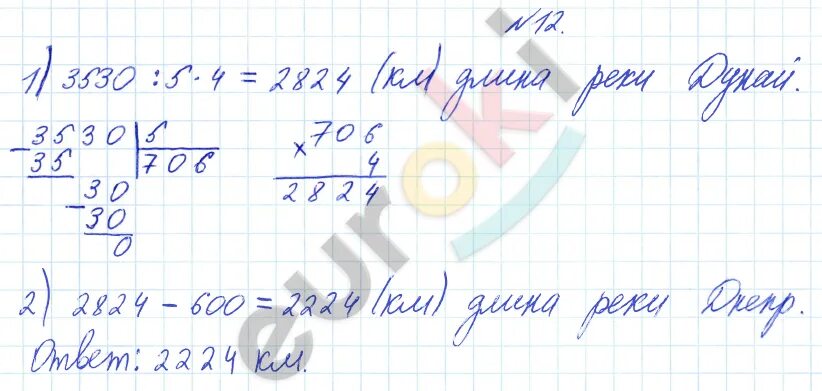 №12.
1) 3530 : 5 · 4 = 2824 (км) длина реки Дунай.
3530 | 5
35 706
30
30
0
706
× 4
2824
2) 2824 - 600 = 2224 (км) длина реки Днепр.
Ответ: 2224 км.
euroki